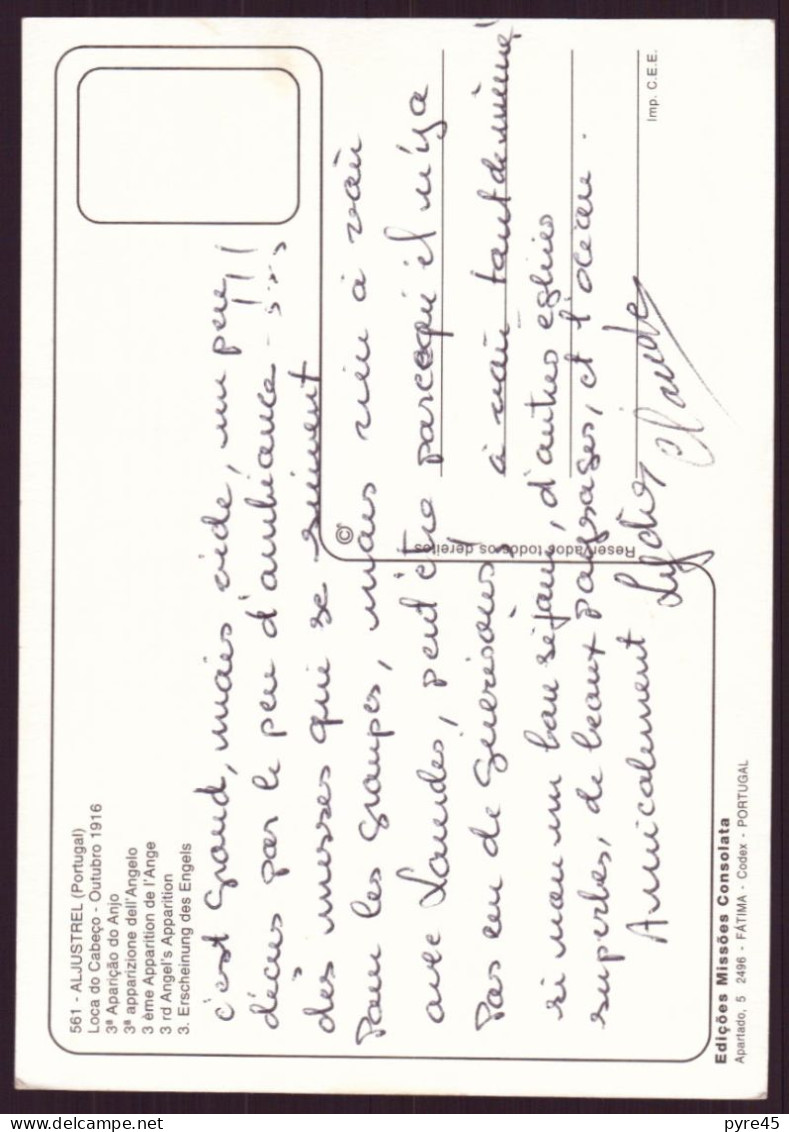 561 - ALJUSTREL (Portugal)
Loca do Cabeço - Outubro 1916
3ª Aparição do Anjo
3ª apparizione dell'Angelo
3 ème Apparition de l'Ange
3 rd Angel's Apparition
3. Erscheinung des Engels
c'est grand, mais vide, un peu
décus par le peu d'ambiance - !!!
des messes qui se suivent
Pour les groupes, mais rien à voir
avec Lourdes, peut être parcequ'il n'ya
Pas eu de guerisons!
à voir tout de même!
si non un bon séjour, d'autres eglises
superbes, de beaux paysages, et l'océan.
Amicalement
Claude
©
Reservados todos os direitos
Imp. C.E.E.
Edições Missões Consolata
Apartado, 5 2496 - FÁTIMA - Codex - PORTUGAL
pyre45